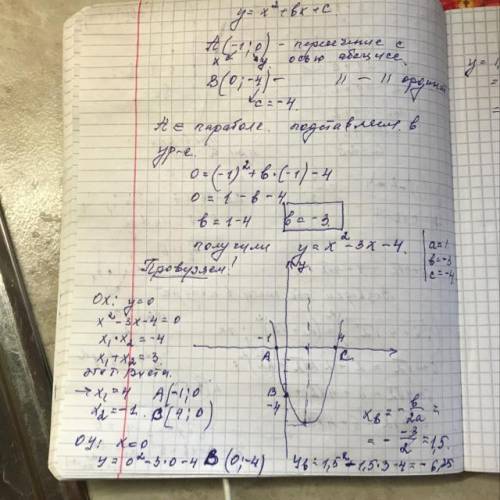 y = x² + bx + c
A(-1; 0) - пересечение с
x y осью абсцисс
B(0; -4) - // - // ординат
c = -4
A ∈ параболе. подставляем в
ур-е.
0 = (-1)² + b·(-1) - 4
0 = 1 - b - 4
b = 1-4 b = -3
получили y = x² - 3x - 4.
a = 1
b = -3
c = -4
Проверяем!
OX: y = 0
x² - 3x - 4 = 0
x₁·x₂ = -4
x₁ + x₂ = 3
Виета.
→ x₁ = 4 A(-1; 0
x₂ = -1. C(4; 0)
OY: x = 0
y = 0² - 3·0 - 4 B(0; -4)
y
-1 4
A C
B
-4
x
xв = -b/2a =
= - -3/2 = 1,5.
yв = 1,5² - 1,5·3 - 4 = -6,25
y =
=
=